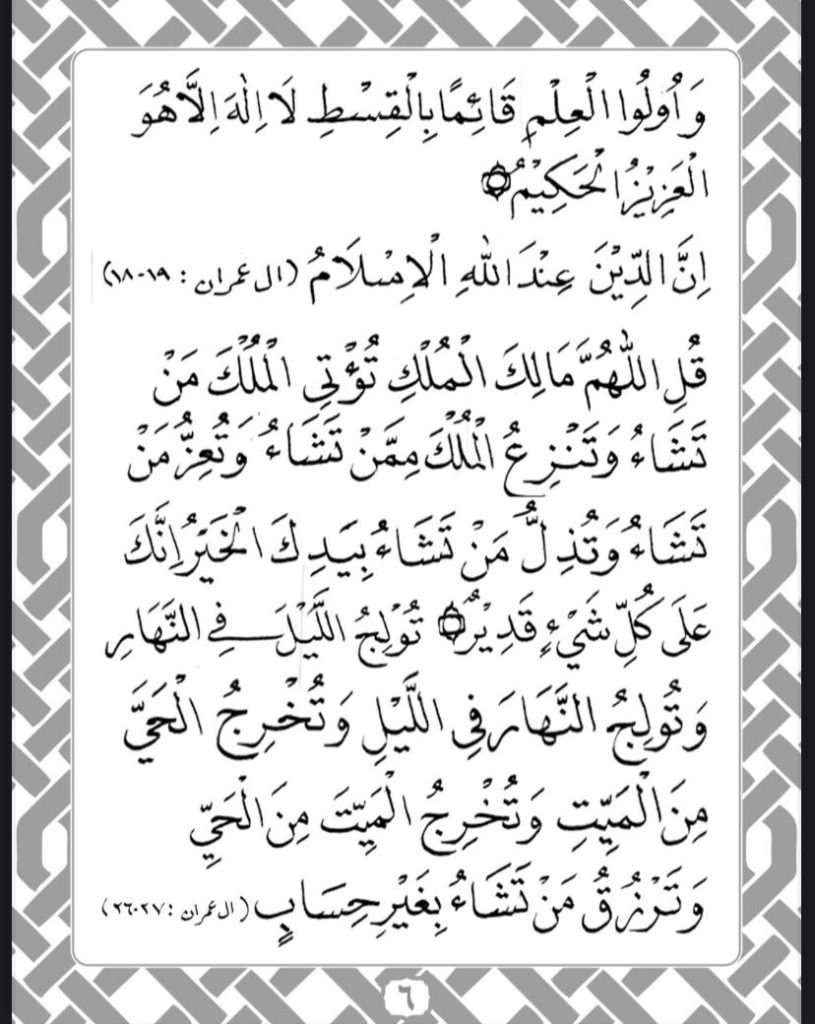 وَاُولُوا الْعِلْمِ قَائِمًا بِالْقِسْطِ لَا اِلٰهَ اِلَّا هُوَ
الْعَزِيْزُ الْحَكِيْمُ۝
اِنَّ الدِّيْنَ عِنْدَ اللّٰهِ الْاِسْلَامُ (ال عمران : ١٩-١٨)
قُلِ اللّٰهُمَّ مَالِكَ الْمُلْكِ تُؤْتِى الْمُلْكَ مَنْ
تَشَاءُ وَتَنْزِعُ الْمُلْكَ مِمَّنْ تَشَاءُ وَتُعِزُّ مَنْ
تَشَاءُ وَتُذِلُّ مَنْ تَشَاءُ بِيَدِكَ الْخَيْرُ اِنَّكَ
عَلَى كُلِّ شَيْءٍ قَدِيْرٌ۝ تُوْلِجُ اللَّيْلَ فِي النَّهَارِ
وَتُوْلِجُ النَّهَارَ فِي اللَّيْلِ وَتُخْرِجُ الْحَيَّ
مِنَ الْمَيِّتِ وَتُخْرِجُ الْمَيِّتَ مِنَ الْحَيِّ
وَتَرْزُقُ مَنْ تَشَاءُ بِغَيْرِ حِسَابٍ (ال عمران : ٢٧-٢٦)
٦